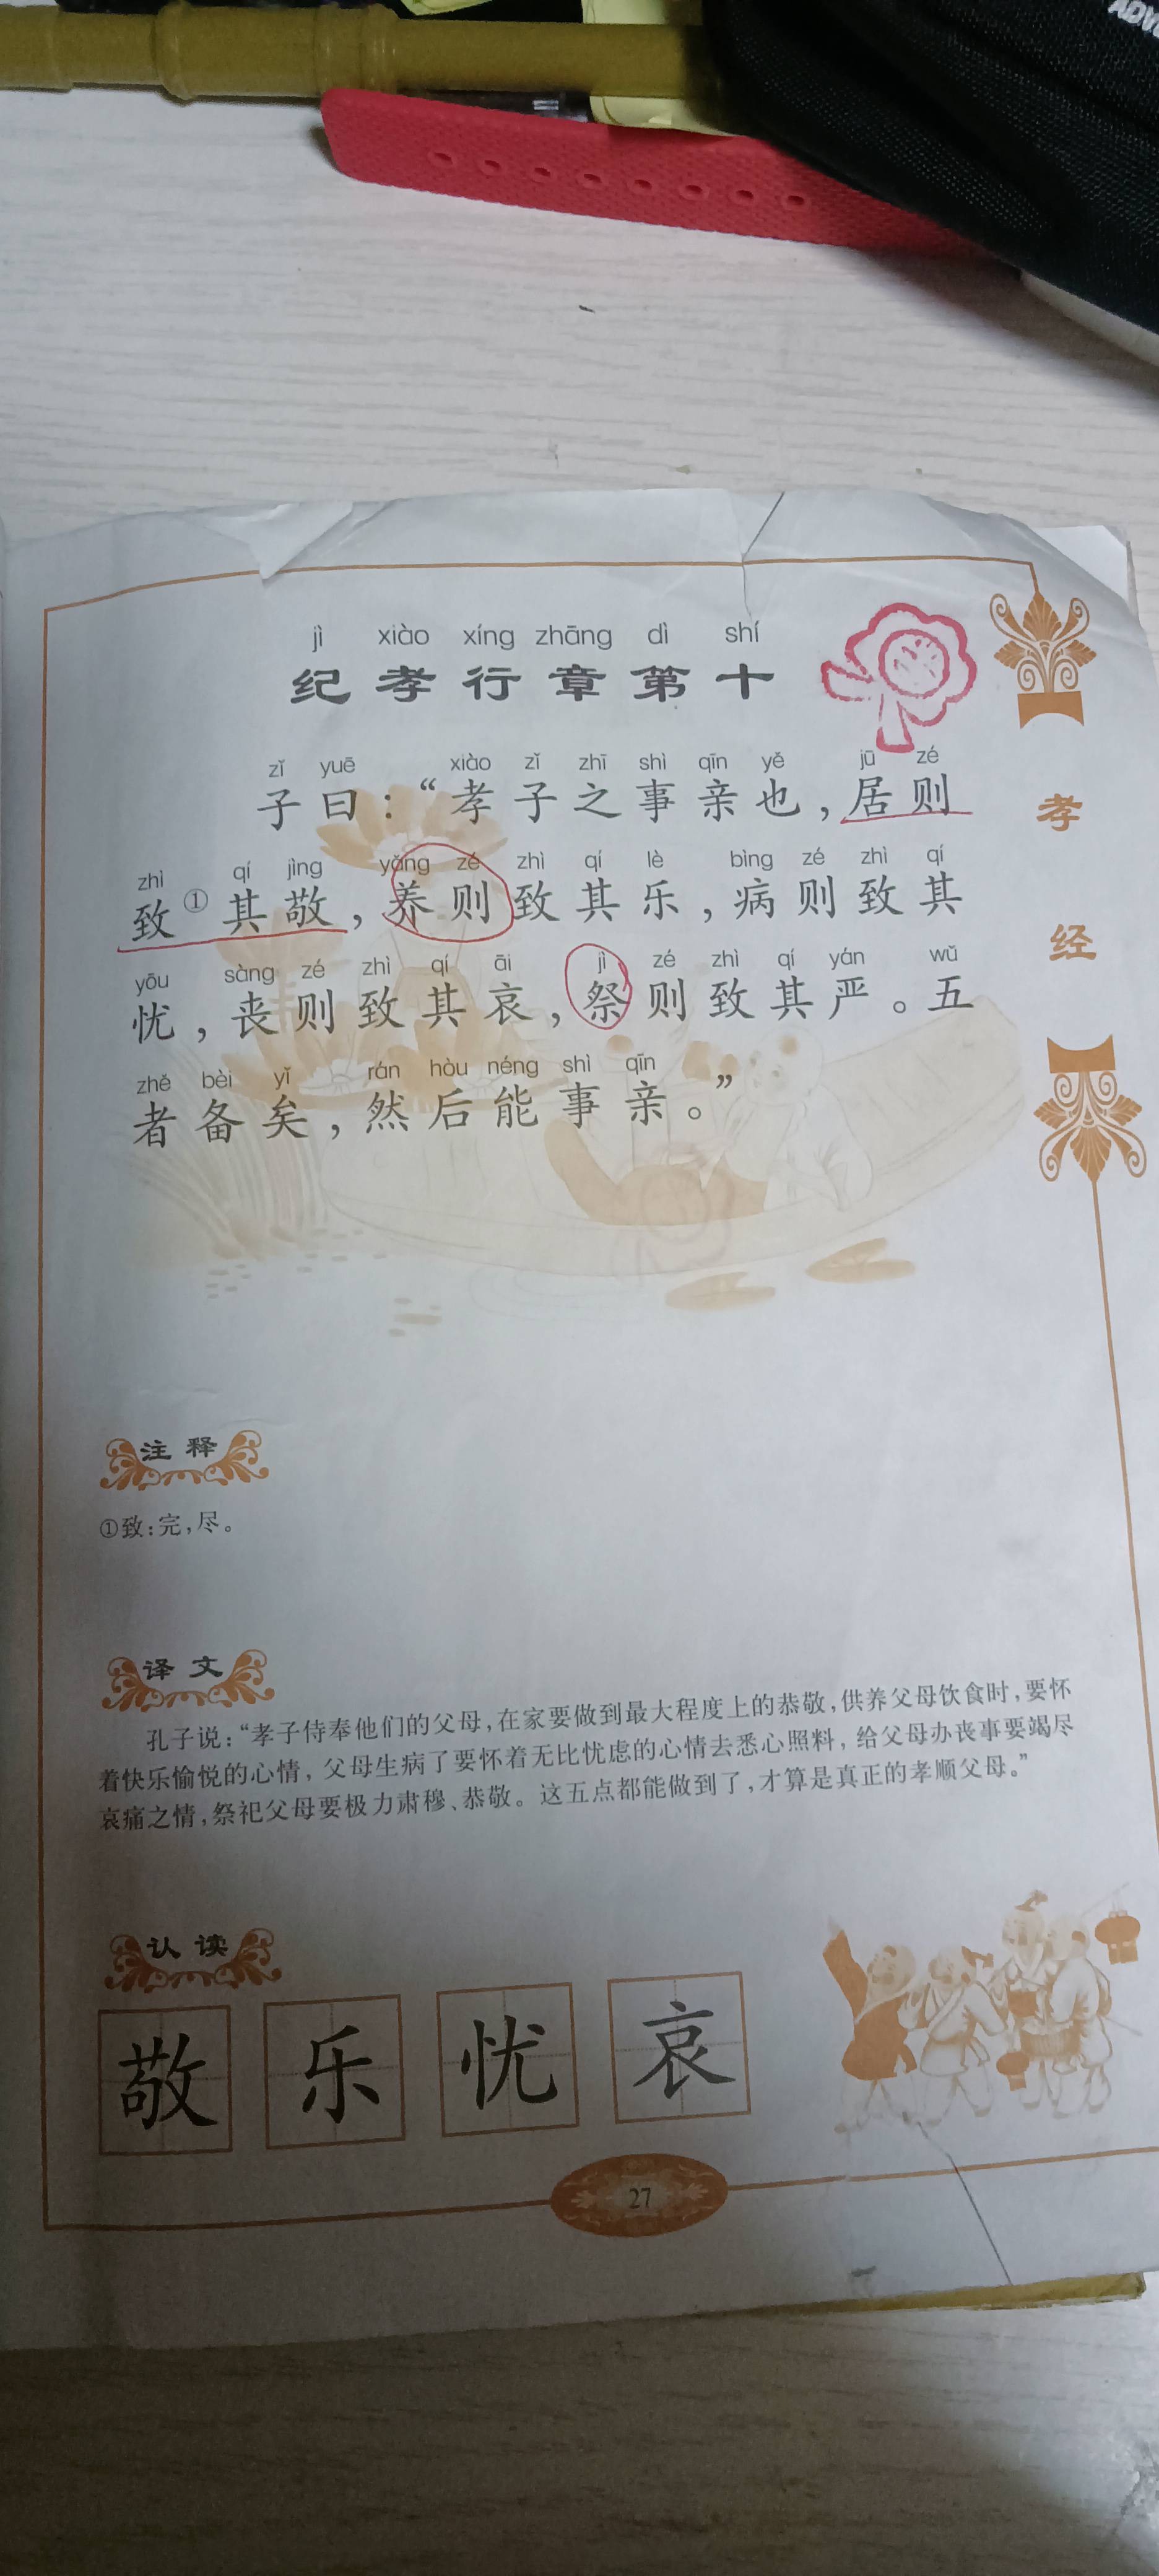 ADV
jì xiào xíng zhāng dì shí
纪孝行章第十
zǐ yuē xiào zǐ zhī shì qīn yě jū zé
子曰：“孝子之事亲也，居则
zhì qí jìng yǎng zé zhì qí lè bìng zé zhì qí
致①其敬，养则致其乐，病则致其
yōu sàng zé zhì qí āi jì zé zhì qí yán wǔ
忧，丧则致其哀，祭则致其严。五
zhě bèi yǐ rán hòu néng shì qīn
者备矣，然后能事亲。”
孝经
注释
①致：完，尽。
译文
孔子说：“孝子侍奉他们的父母，在家要做到最大程度上的恭敬，供养父母饮食时，要怀
着快乐愉悦的心情，父母生病了要怀着无比忧虑的心情去悉心照料，给父母办丧事要竭尽
哀痛之情，祭祀父母要极力肃穆、恭敬。这五点都能做到了，才算是真正的孝顺父母。”
认读
敬 乐 忧 哀
27